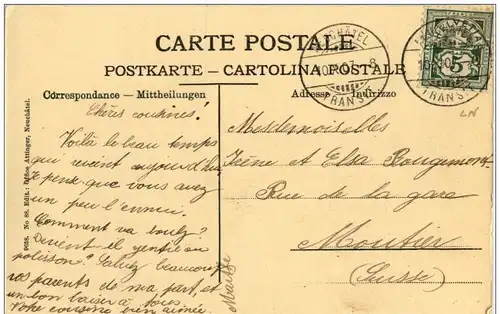 CARTE POSTALE
POSTKARTE – CARTOLINA POSTALE
Correspondance – Mittheilungen
Adresse – Indirizzo
Chères cousines!
Voilà le beau temps
qui revient aujourd'hui
je pense que vous avez
un peu l'ennui.
Comment va
Devient il gentil ou
polisson? Saluez beaucoup
vos parents de ma part, et
un bon baiser à tous.
Votre cousine bien aimée
Mesdemoiselles
Irène et Elsa Rougemont
Rue de la gare
Moutier
(Suisse)
Edit. Attinger, Neuchâtel.
TRANSIT
5